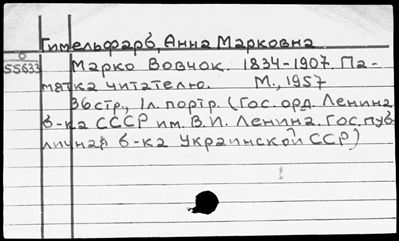 Гимельфарб, Анна Марковна
О
55633
Марко Вовчок. 1834-1907. Па-
мятка читателю. М., 1957
36стр., 1л. портр. (Гос. орд. Ленина
б-ка СССР им. В.И. Ленина. Гос. пуб
личная б-ка Украинской ССР)